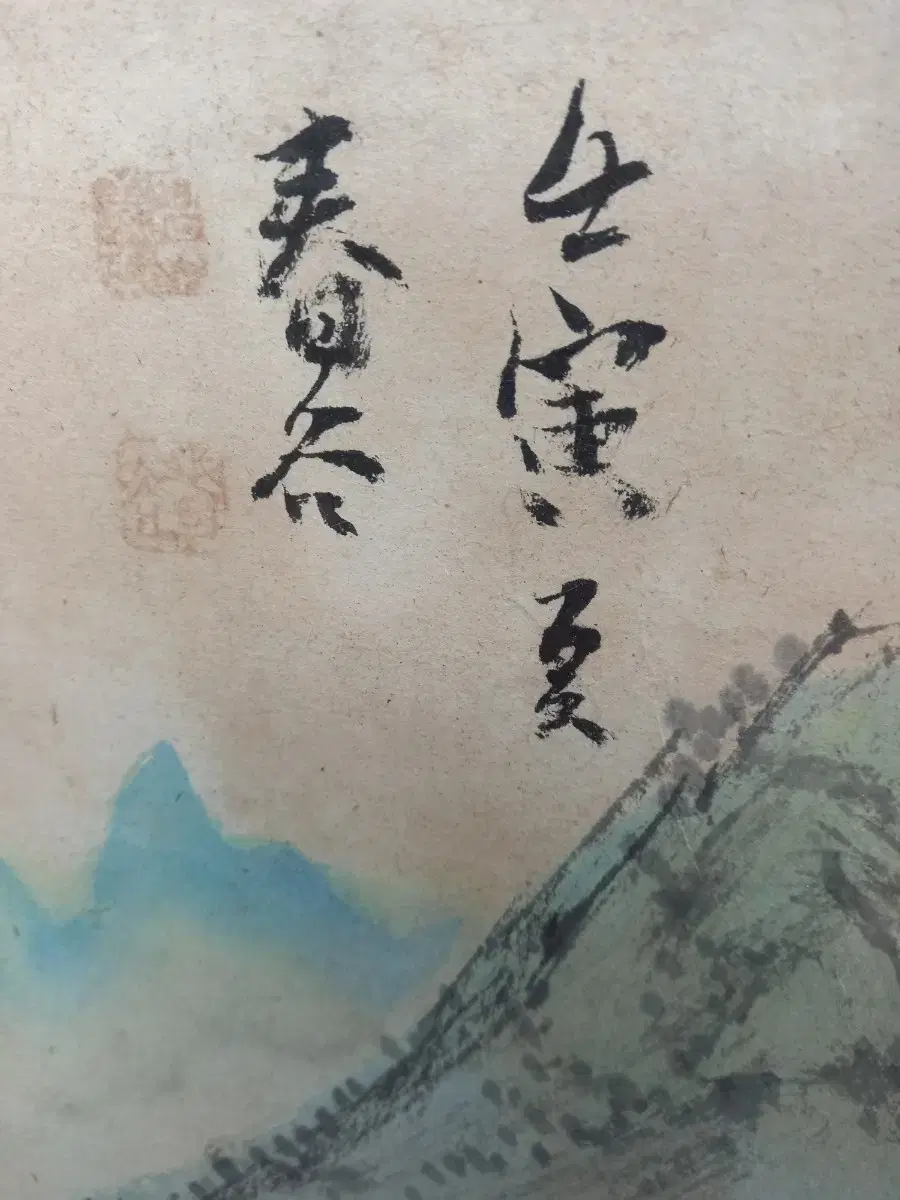 壬寅夏
春谷